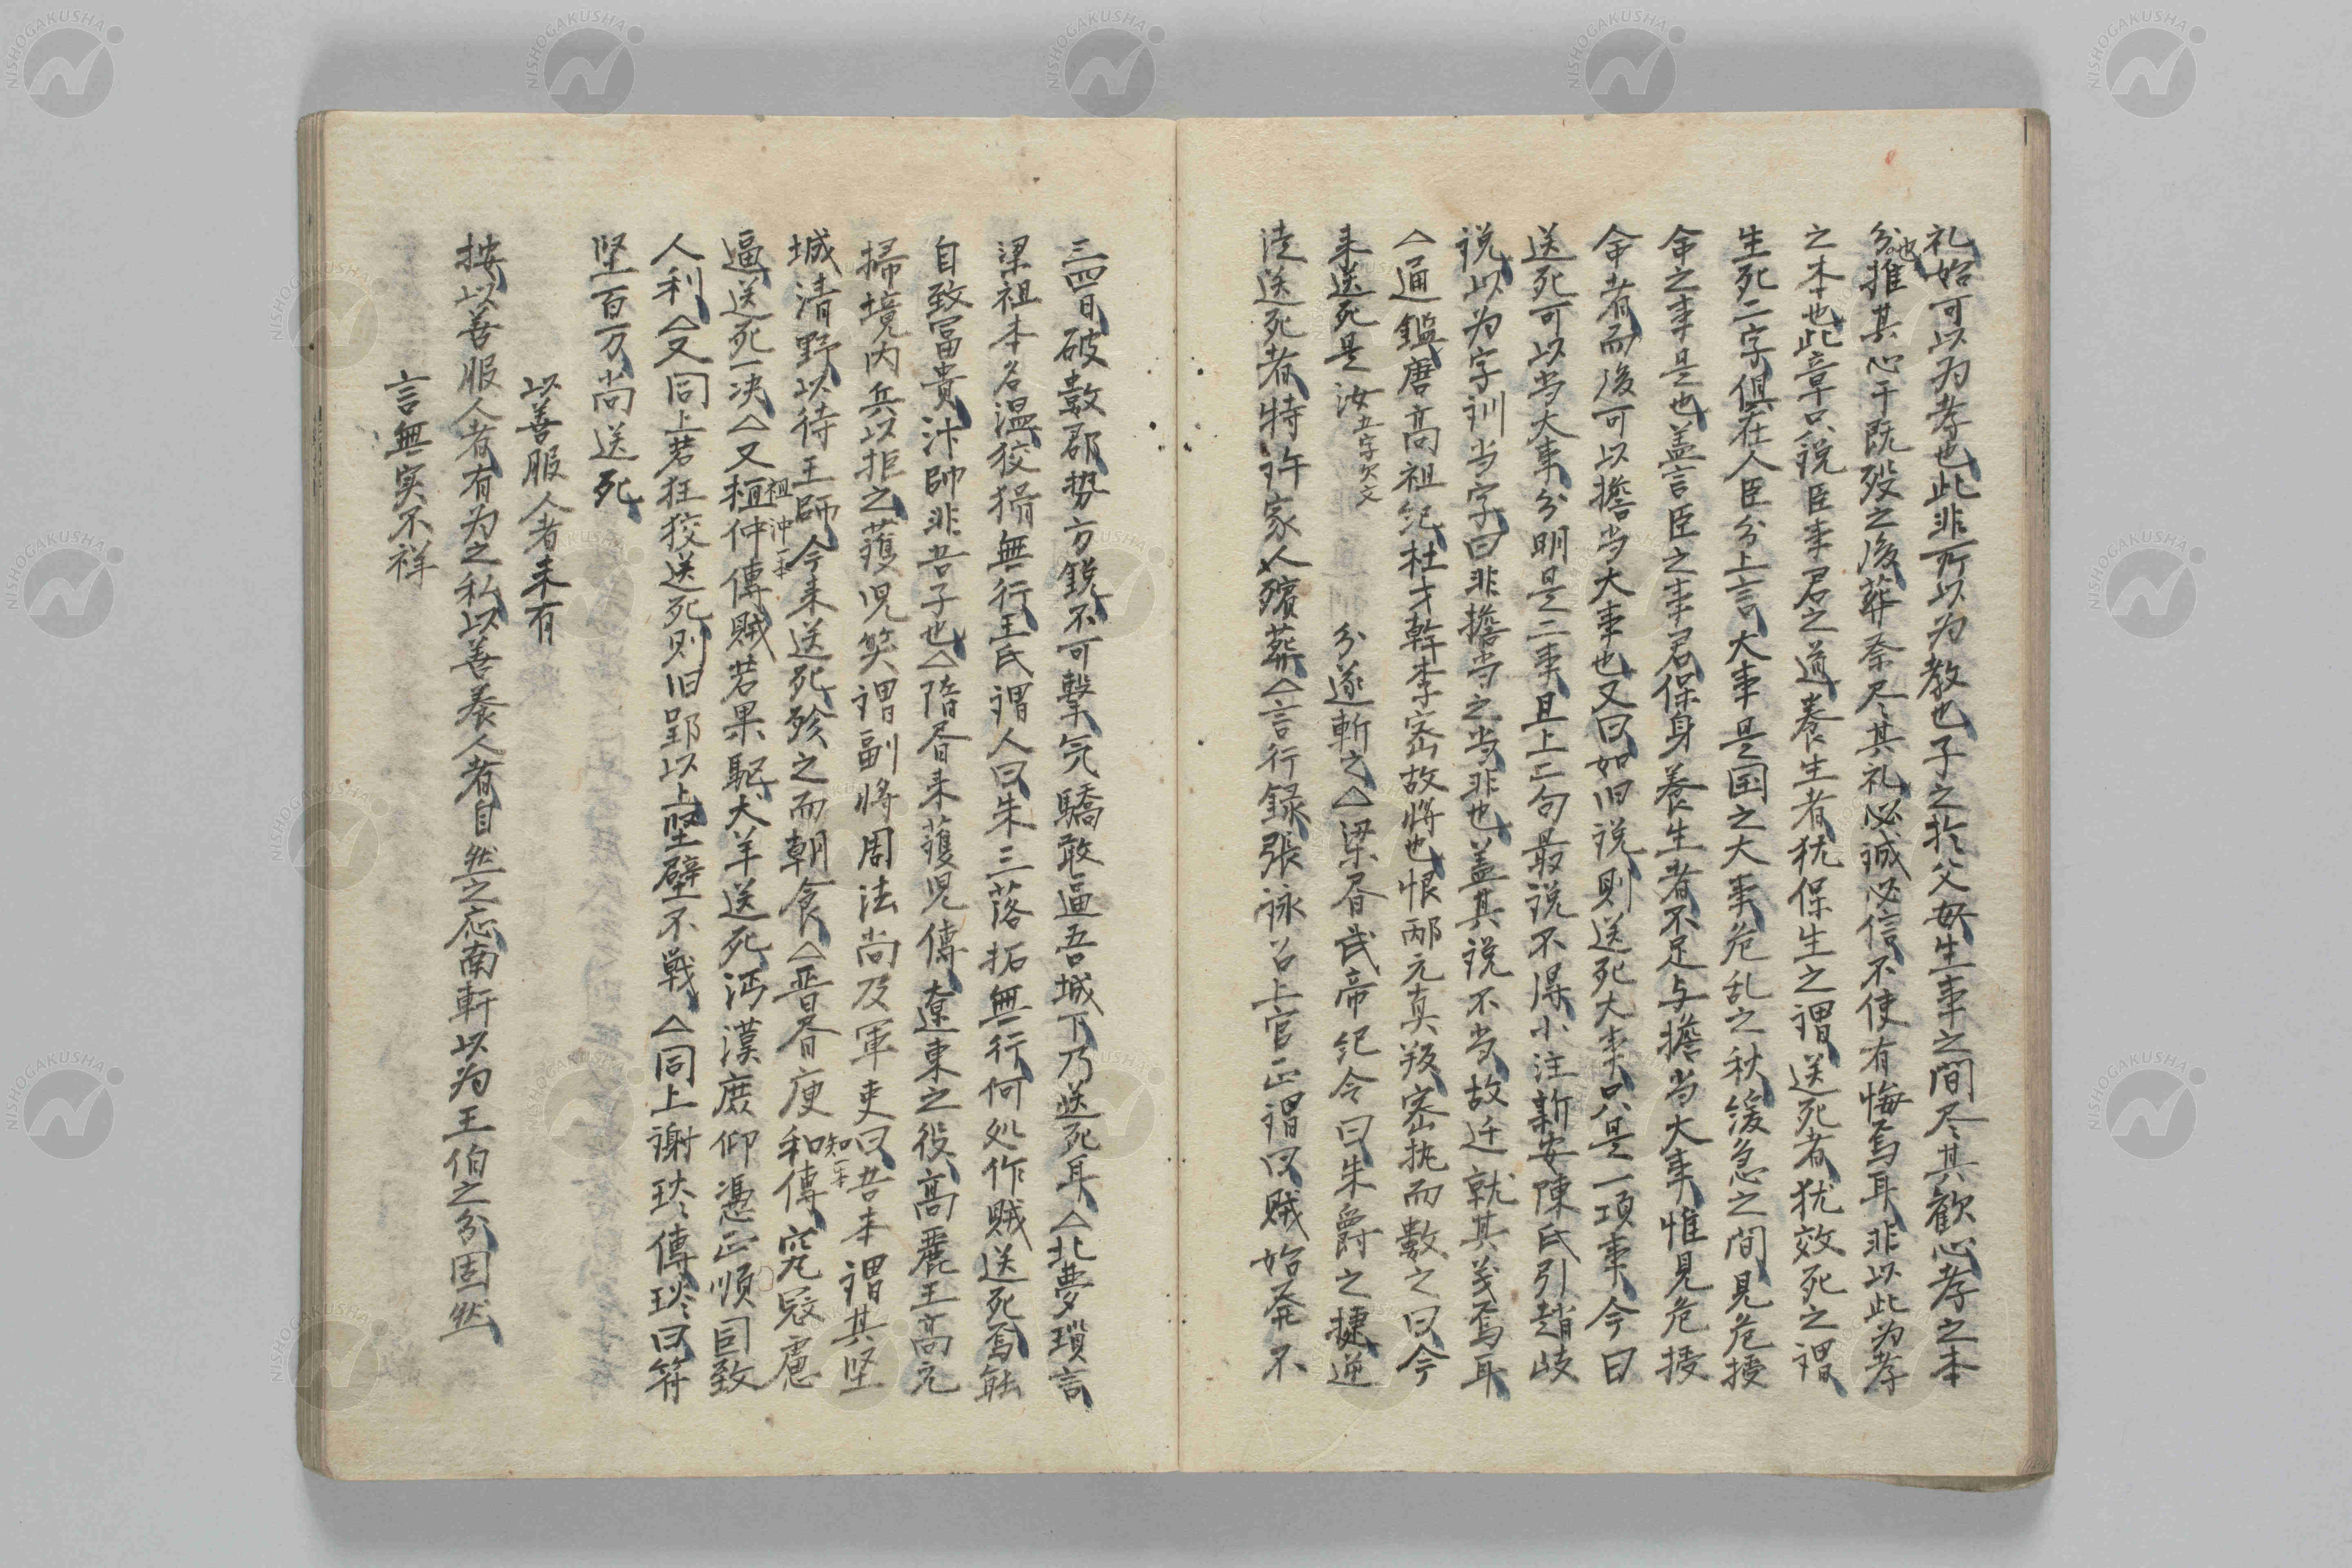 礼始可以为孝也此非所以为教也子之於父母生事之間尽其歓心孝之本
分也推其心于既殁之後葬祭尽其礼必誠必信不使有悔焉耳非以此为孝
之本也此章只説臣事君之道養生者犹保生之謂送死者犹效死之謂
生死二字倶在人臣分上言大事是国之大事危乱之秋緩急之間見危授
命之事是也盖言臣之事君保身養生者不足与擔当大事惟見危授
命者而後可以擔当大事也又曰如旧説則送死大事只是一項事今曰
送死可以当大事分明是二事且上二句最説不得小注新安陳氏引趙岐
説以为字訓当字曰非擔当之当非也盖其説不当故迁就其義焉耳
△通鑑唐高祖紀杜才幹李密故将也恨邴元真叛密執而數之曰今
来送死是汝五字欠文分遂斬之△梁書武帝紀今曰朱爵之捷逆
徒送死者特許家人殯葬△言行録張詠召上官正謂曰賊始発不
三四日破數郡势方鋭不可擊気驕敢逼吾城下乃送死耳△北夢瑣言
梁祖本名温狡猾無行王氏謂人曰朱三落拓無行何処作賊送死焉能
自致冨貴汴帥非吾子也△隋書来護児傳遼東之役高麗王高元
掃境内兵以拒之護児笑謂副将周法尚及軍吏曰吾本謂其堅
城清野以待王師今来送死殄之而朝食△晋書庾和知一本傳窮寇慮
逼送死一决△又桓仲祖冲一本傳賊若果駆犬羊送死沔漠庶仰憑正順囙致
人利△又同上若狂狡送死則旧郢以上堅壁不戦△同上謝琰傳琰曰苻
堅百万尚送死
以善服人者未有
按以善服人者有为之私以善養人者自然之応南軒以为王伯之分固然
言無実不祥